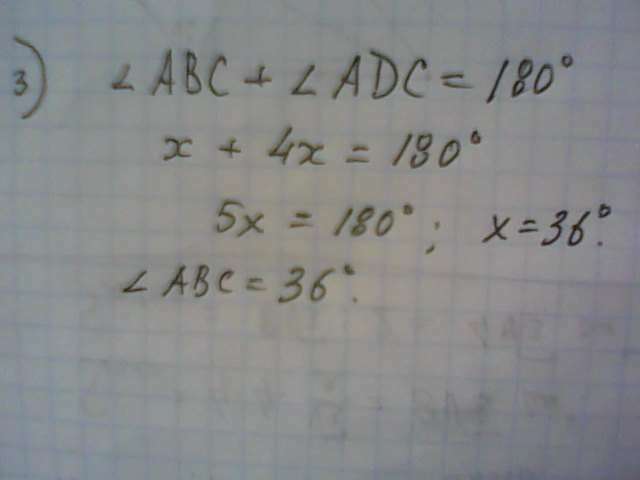 3) ∠ABC + ∠ADC = 180°
x + 4x = 180°
5x = 180° ; x = 36°.
∠ABC = 36°.